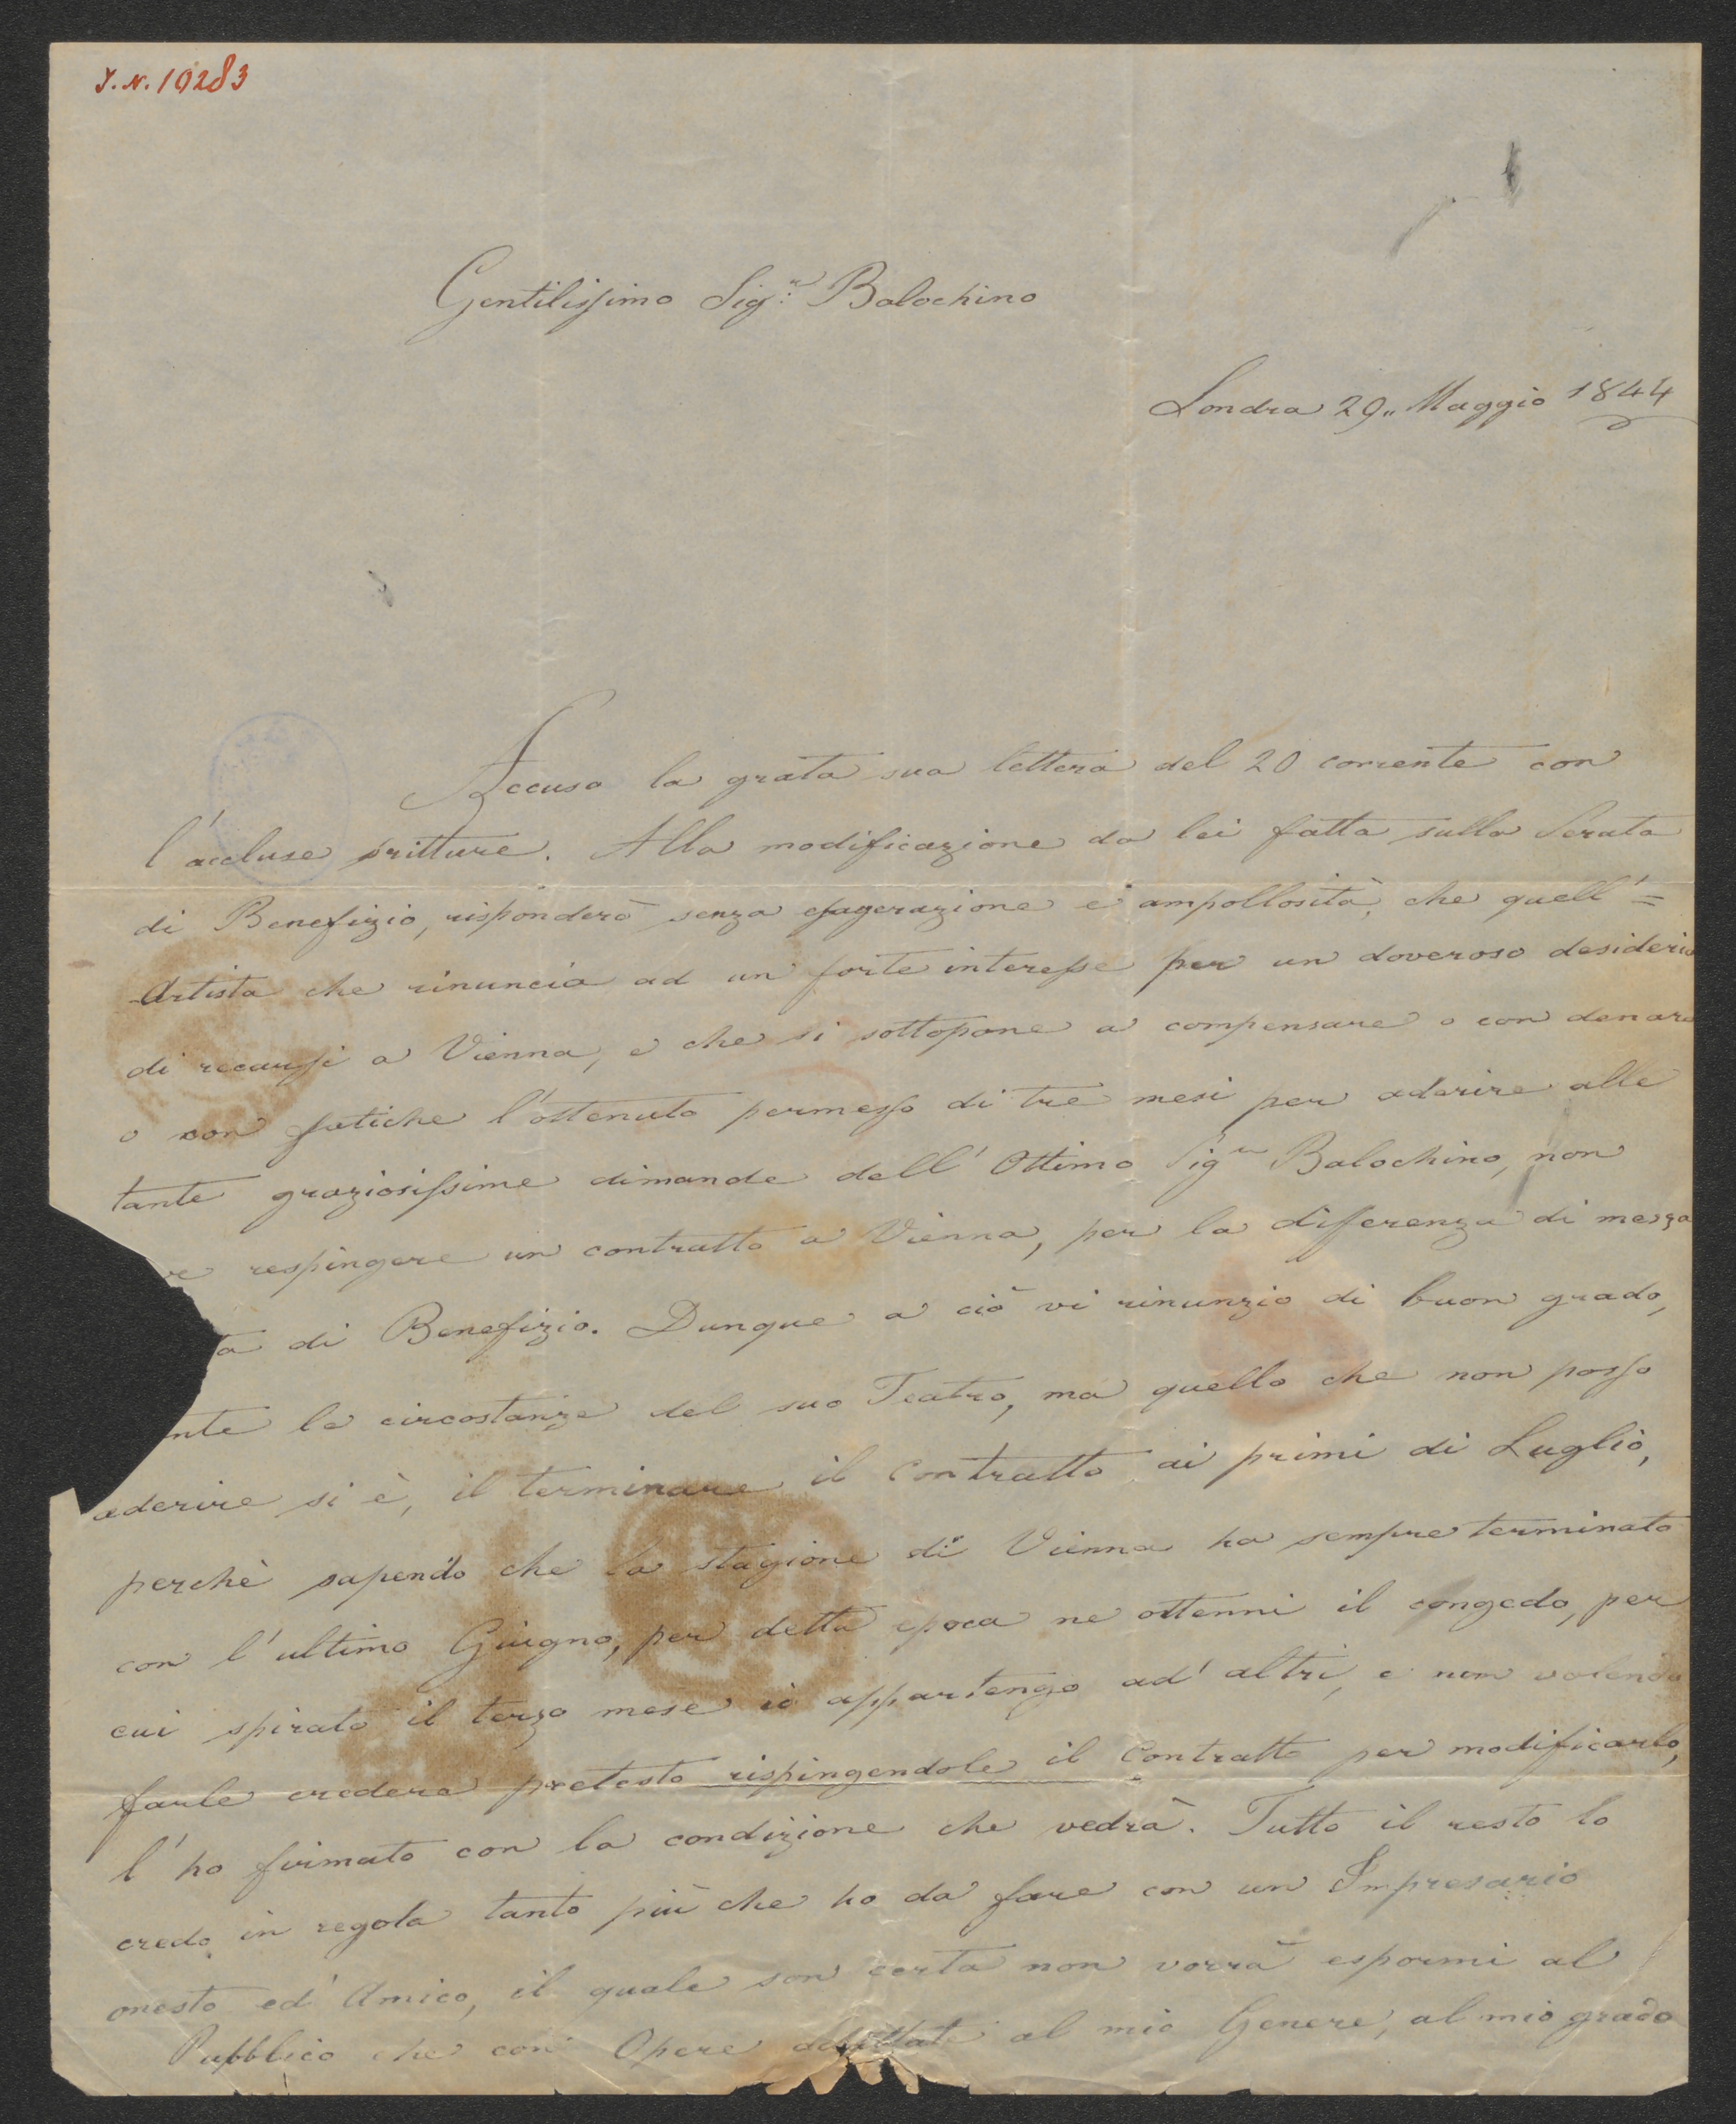 J. N. 10283
Gentilissimo Sig.r Balochino
Londra 29,, Maggio 1844
Accuso la grata sua lettera del 20 corrente con
l'accluse scritture. Alla modificazione da lei fatta sulla Serata
di Benefizio, risponderò senza esagerazione e ampollosità, che quell'=
Artista che rinuncia ad un forte interesse per un doveroso desiderio
di recarsi a Vienna, e che si sottopone a compensare o con denaro
o con fatiche l'ottenuto permesso di tre mesi per aderire alle
tante graziosissime dimande dell' Ottimo Sigr Balochino, non
ve respingere un contratto a Vienna, per la differenza di mezza
ta di Benefizio. Dunque a ciò vi rinunzio di buon grado,
nte le circostanze del suo Teatro, ma quello che non posso
aderire si è, il terminare il Contratto ai primi di Luglio,
perchè sapendo che la stagione di Vienna ha sempre terminato
con l'ultimo Giugno, per detta epoca ne ottenni il congedo, per
cui spirato il terzo mese io appartengo ad' altri, e non volendo
farle credere pretesto rispingendole il Contratto per modificarlo,
l'ho firmato con la condizione che vedrà. Tutto il resto lo
credo in regola tanto più che ho da fare con un Impresario
onesto ed' Amico, il quale son certa non vorrà espormi al
Pubblico che con Opere adattate al mio Genere, al mio grado